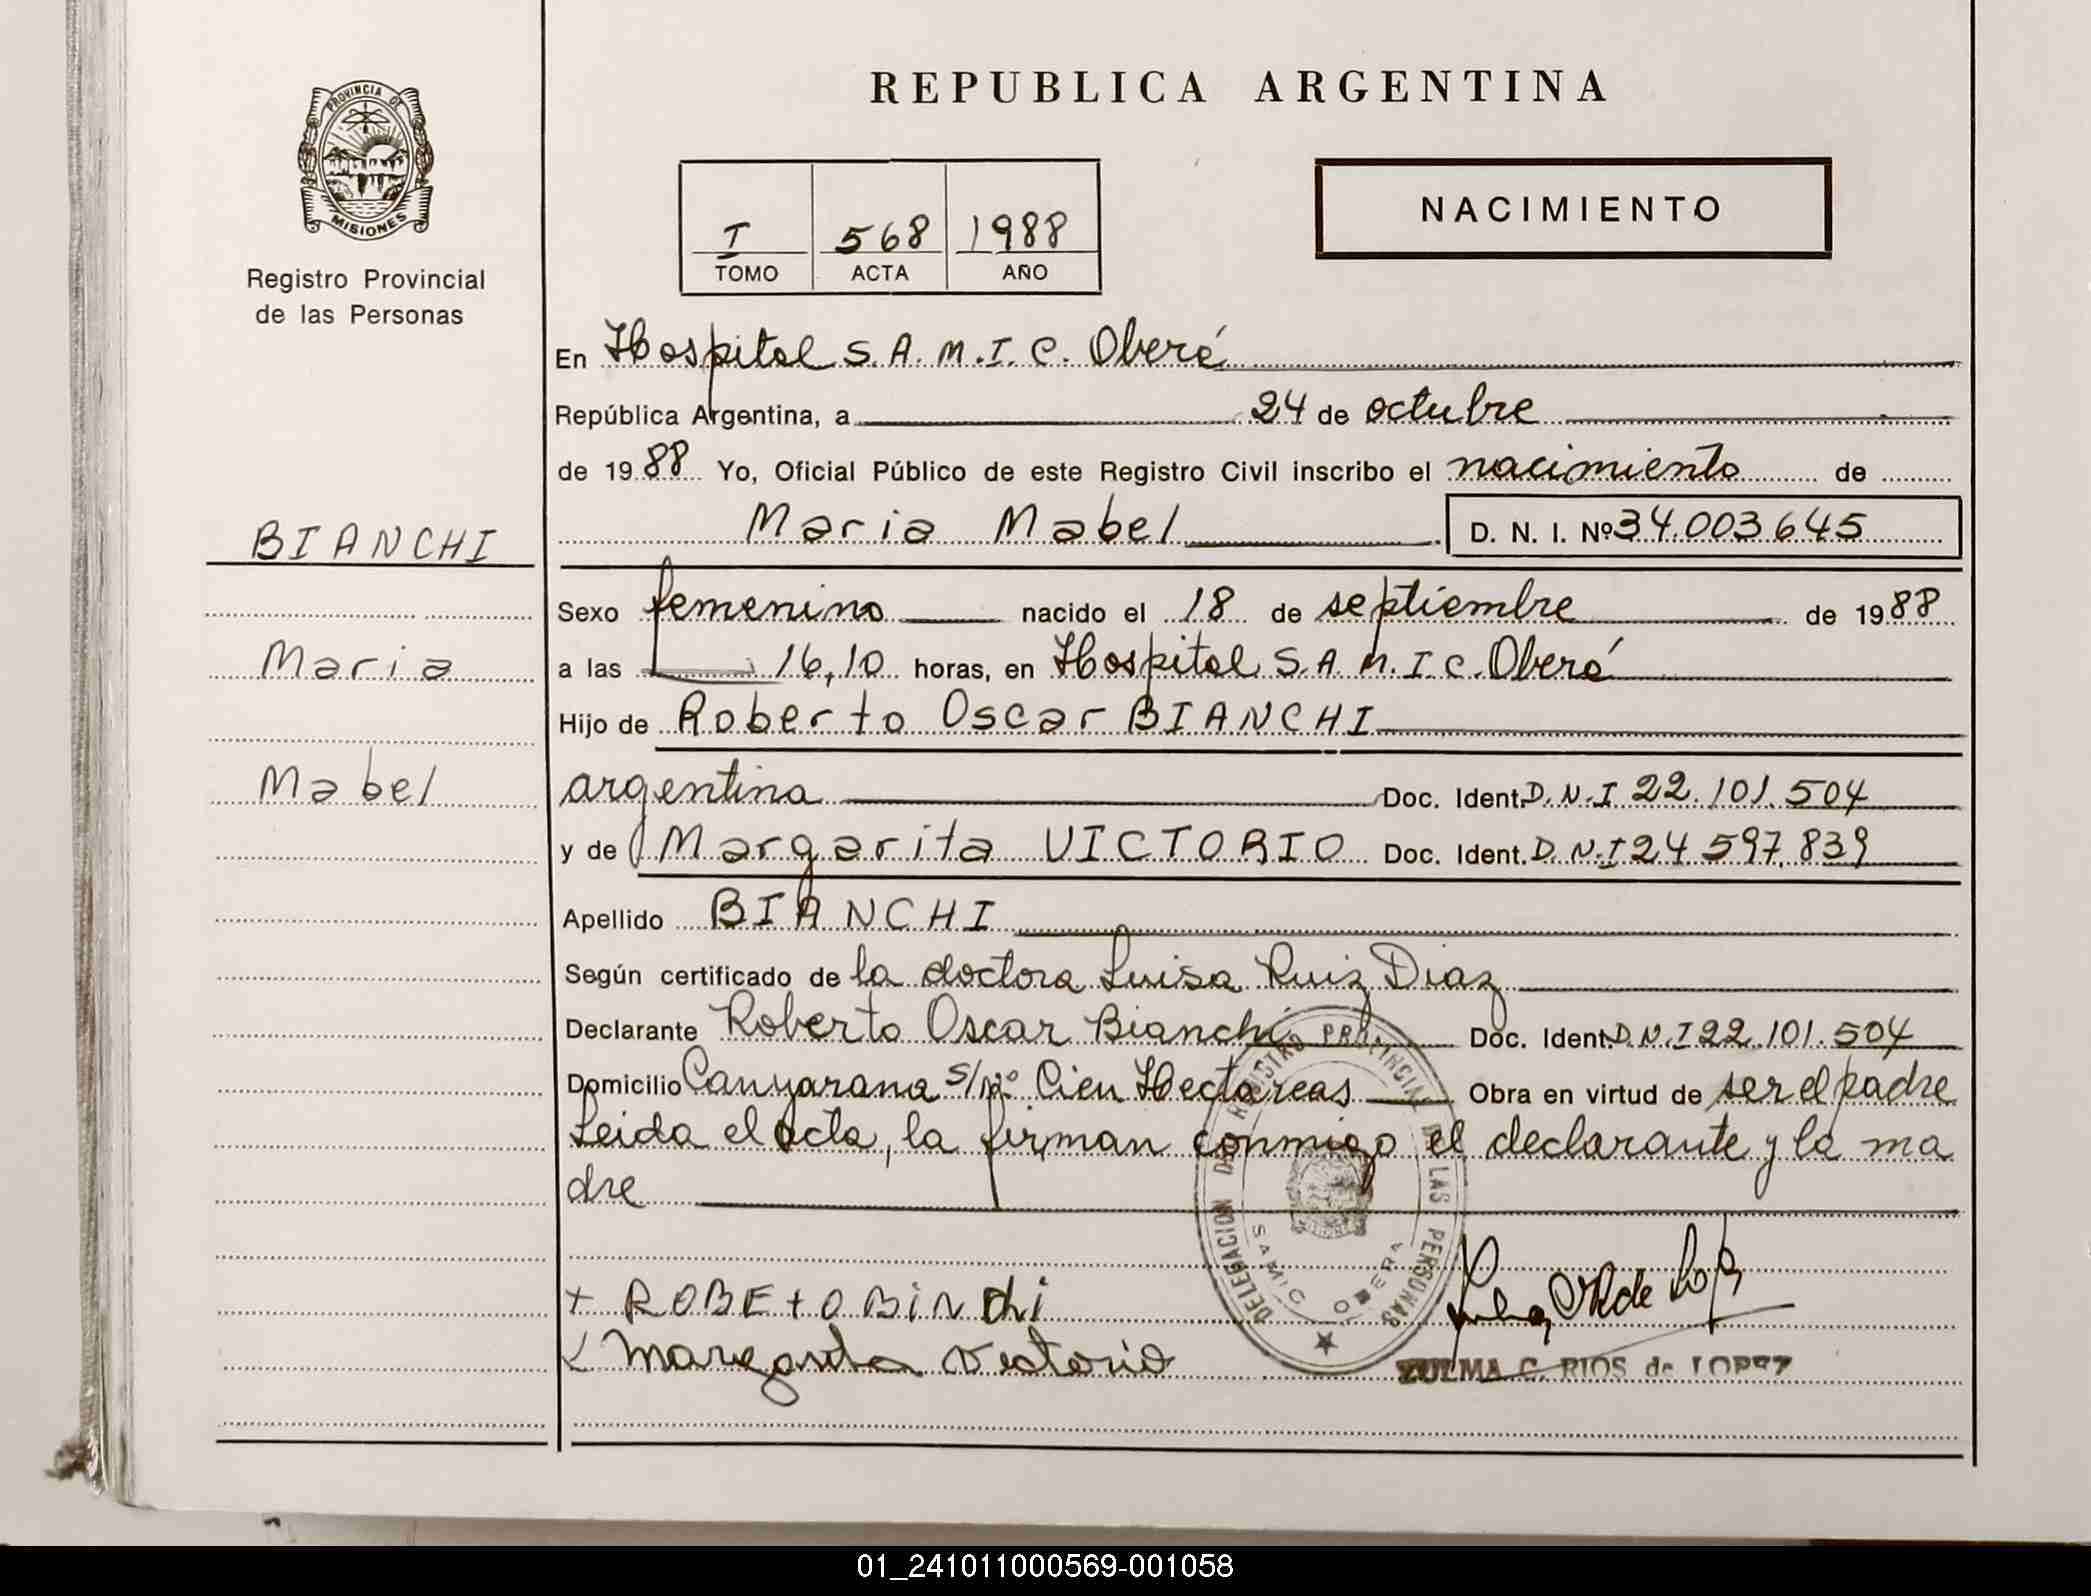 REPUBLICA ARGENTINA
PROVINCIA DE
MISIONES
Registro Provincial
de las Personas
I 568 1988
TOMO ACTA AÑO
NACIMIENTO
En Hospital S.A.M.I.C. Oberá
República Argentina, a 24 de octubre
de 1988 Yo, Oficial Público de este Registro Civil inscribo el nacimiento de
Maria Mabel D. N. I. Nº 34.003645
BIANCHI
Maria
Mabel
Sexo femenino nacido el 18 de septiembre de 1988
a las 16,10 horas, en Hospital S.A.M.I.C. Oberá
Hijo de Roberto Oscar BIANCHI
argentina Doc. Ident. D.N.I 22.101.504
y de Margarita VICTORIO Doc. Ident. D.N.I 24 597.839
Apellido BIANCHI
Según certificado de la doctora Luisa Ruiz Diaz
Declarante Roberto Oscar Bianchi Doc. Ident. D.N.I 22.101.504
Domicilio s/nº Cien Hectareas Obra en virtud de ser el padre
Leida el acta, la firman conmigo el declarante y la ma
dre
DELEGACION DEL REGISTRO PROVINCIAL DE LAS PERSONAS
SAMIC OBERA
+ ROBEtO BiNchi
Margarita Victorio
ZULMA C. RIOS de LOPEZ
01_241011000569-001058